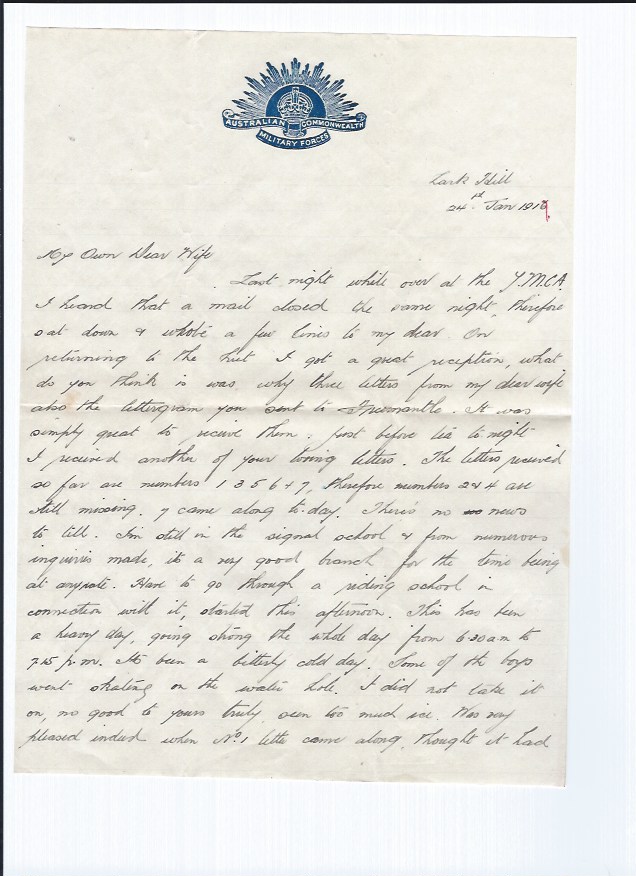 AUSTRALIAN COMMONWEALTH
MILITARY FORCES
Lark Hill
24st Jan 1917.
My Own Dear Wife
Last night while over at the Y.M.C.A.
I heard that a mail closed the same night, therefore
sat down & wrote a few lines to my dear. On
returning to the hut I got a great reception, what
do you think is was why three letters from my dear wife
also the lettergram you sent to Fremantle. It was
simply great to receive them. Just before tea to-night
I received another of your loving letters. The letters received
so far are numbers 1 3 5 6 & 7, therefore numbers 2 & 4 are
still missing. 7 came along to-day. There's no news
to tell. I'm still in the signal school & from numerous
inquiries made, it's a very good branch for the time being
at anyrate. Have to go through a riding school in
connection with it, started this afternoon. This has been
a heavy day, going strong the whole day from 6.30 am to
7.15 p.m. It's been a bitterly cold day. Some of the boys
went skating on the water hole. I did not take it
on, no good to yours truly, seen too much ice. Was very
pleased indeed when No. 1 letter came along, thought it had